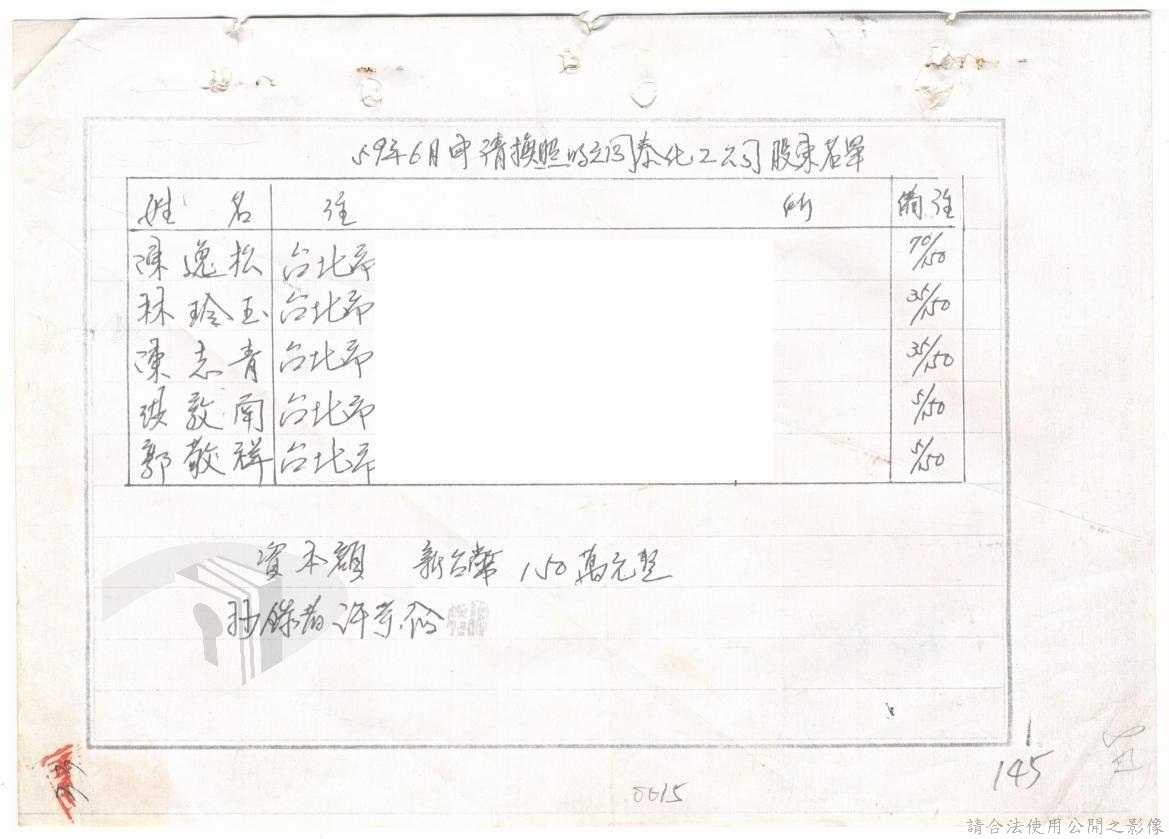 59年6月申請換照時之同泰化工公司股東名單
姓 名 住 所 備註
陳逸松 台北市 70/150
林玲玉 台北市 35/150
陳志青 台北市 35/150
張敦南 台北市 5/150
郭敬祥 台北市 5/150
資本額 新台幣 150萬元整
抄錄者 許
145
0015
請合法使用公開之影像